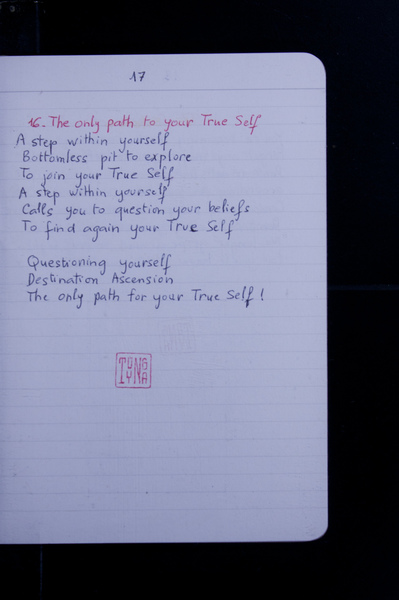 17
16. The only path to your True Self
A step within yourself
Bottomless pit to explore
To join your True Self
A step within yourself
Calls you to question your beliefs
To find again your True Self
Questioning yourself
Destination Ascension
The only path for your True Self !